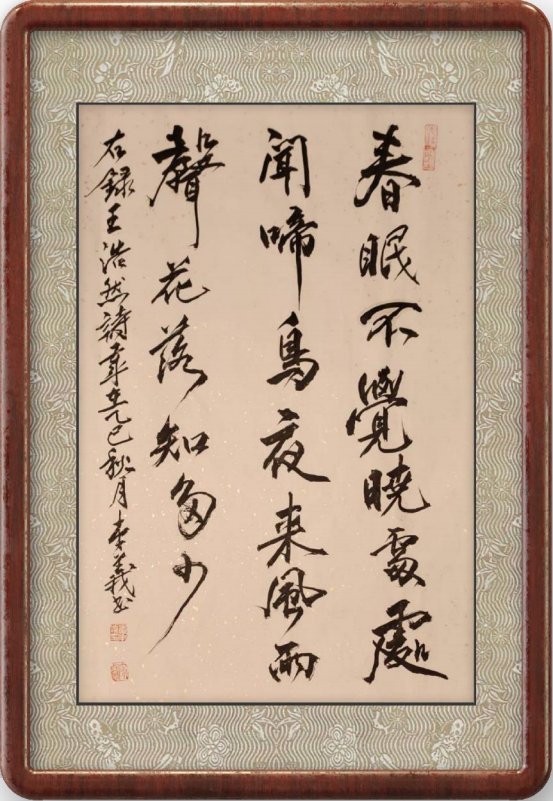 春眠不覺曉處處
聞啼鳥夜来風雨
聲花落知多少
右録王浩然詩巳秋月李義书